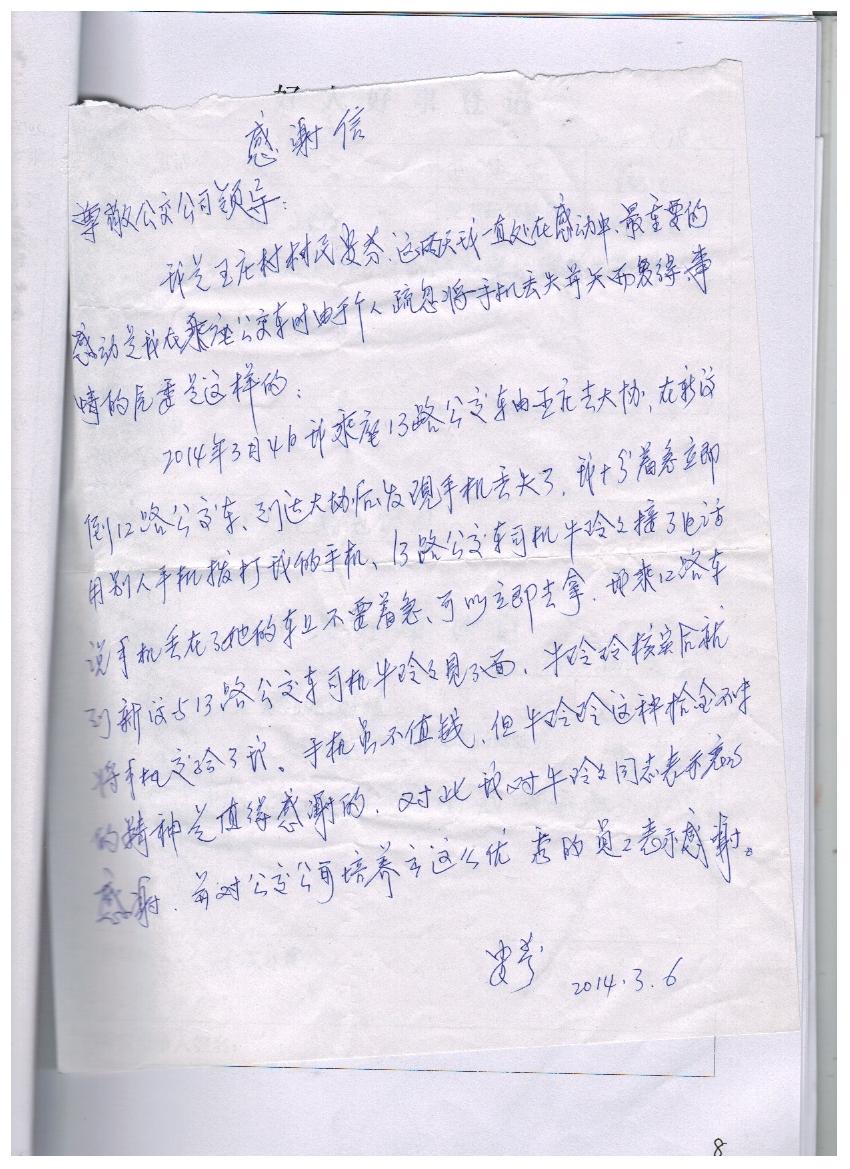 感谢信
尊敬公交公司领导:
我是王庄村村民 这两天我一直处在感动中、最重要的
感动是我在乘座公交车时由于个人疏忽将手机丢失并失而复得事
情的原委是这样的:
2014年3月4日我乘座13路公交车由王庄去大协,在新汶
倒12路公交车、到达大协后发现手机丢失了,我十分着急立即
用别人手机拨打我的手机、13路公交车司机牛玲玲接了电话
说手机丢在了她的车上不要着急、可以立即去拿.我乘12路车
到新汶与13路公交车司机牛玲玲见了面、牛玲玲核实后就
将手机交给了我。手机虽不值钱、但牛玲玲这种拾金不昧
的精神是值得感谢的.对此我对牛玲玲同志表示衷心
感谢.并对公交公司培养出这么优秀的员工表示感谢。
2014.3.6
8